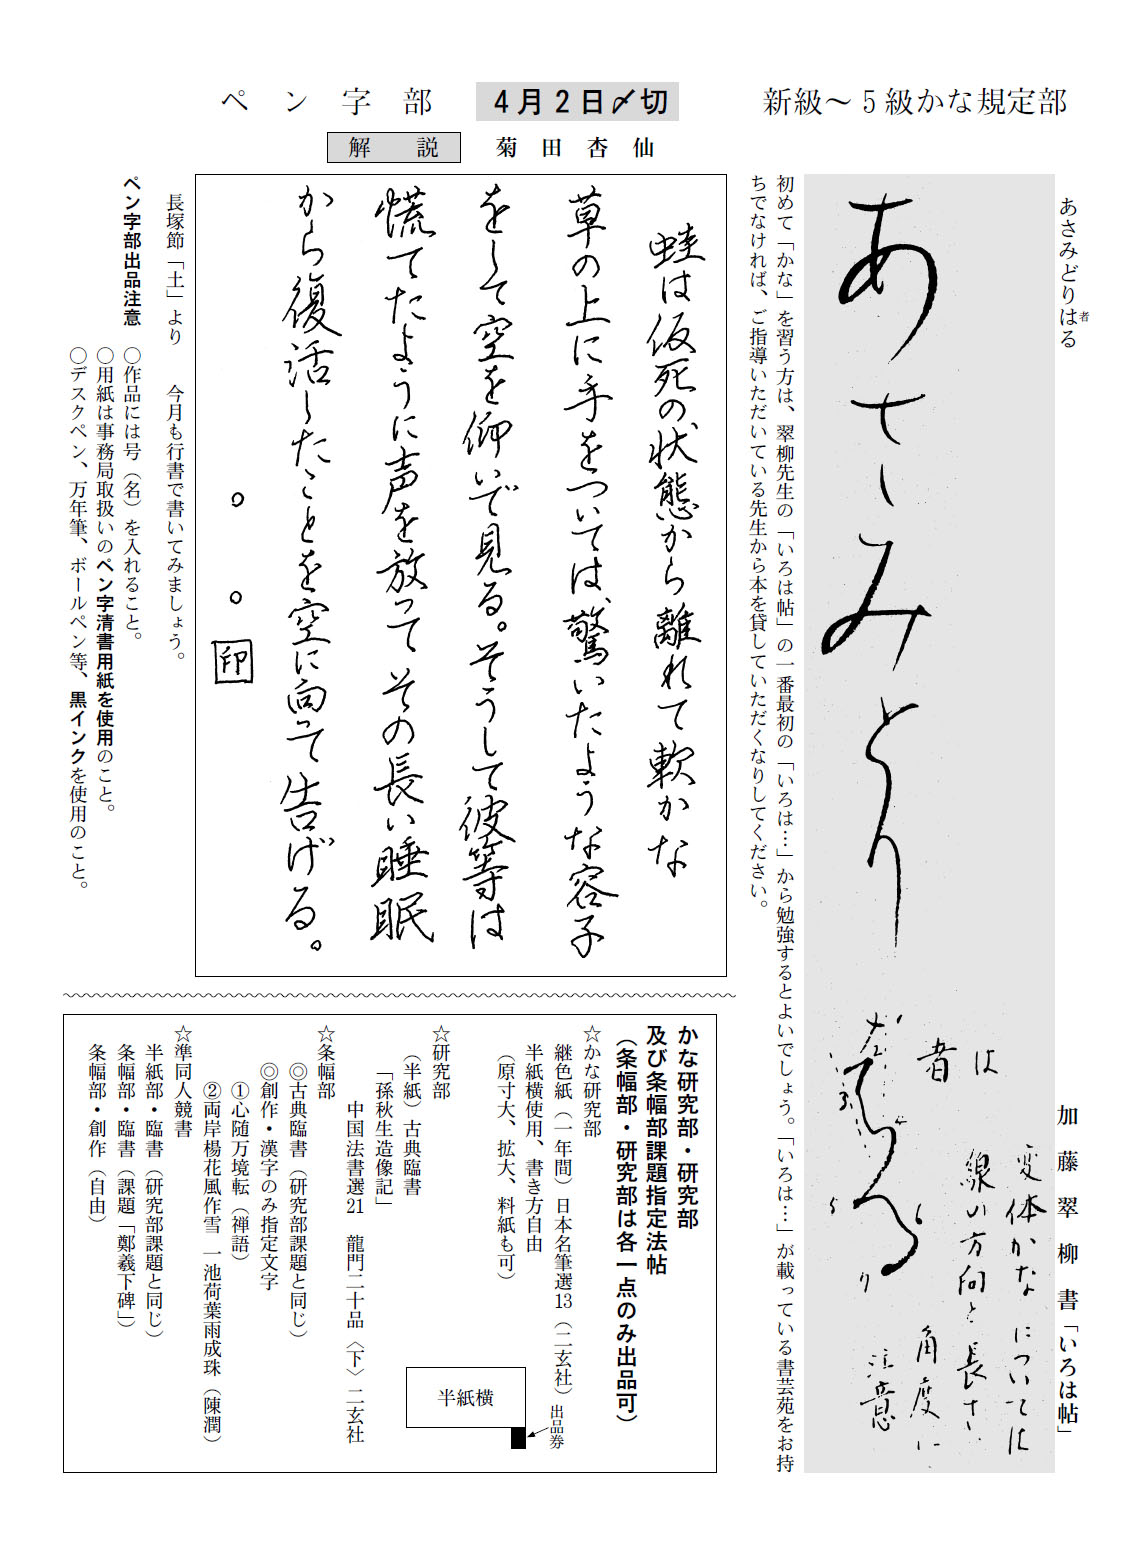 新級～５級かな規定部
４月２日〆切
ペン字部
解説　菊田杏仙
あさみどりはる
者
加藤翠柳書「いろは帖」
あさみとり
はる
は
者
変体かなについては
線の方向と長さ
角度に
注意
初めて「かな」を習う方は、翠柳先生の「いろは帖」の一番最初の「いろは…」から勉強するとよいでしょう。「いろは…」が載っている書芸苑をお持
ちでなければ、ご指導いただいている先生から本を貸していただくなりしてください。
蛙は仮死の状態から離れて軟かな
草の上に手をついては、驚いたような容子
をして空を仰いで見る。そうして彼等は
慌てたように声を放ってその長い睡眠
から復活したことを空に向って告げる。
○　○　印
長塚節「土」より　今月も行書で書いてみましょう。
ペン字部出品注意
○作品には号（名）を入れること。
○用紙は事務局取扱いのペン字清書用紙を使用のこと。
○デスクペン、万年筆、ボールペン等、黒インクを使用のこと。
かな研究部・研究部
及び条幅部課題指定法帖
（条幅部・研究部は各一点のみ出品可）
☆かな研究部
継色紙（一年間）日本名筆選13（二玄社）
半紙横使用、書き方自由
（原寸大、拡大、料紙も可）
半紙横
出品券
☆研究部
（半紙）古典臨書
「孫秋生造像記」
中国法書選21　龍門二十品〈下〉二玄社
☆条幅部
◎古典臨書（研究部課題と同じ）
◎創作・漢字のみ指定文字
①心随万境転（禅語）
②両岸楊花風作雪　一池荷葉雨成珠（陳潤）
☆準同人競書
半紙部・臨書（研究部課題と同じ）
条幅部・臨書（課題「鄭羲下碑」）
条幅部・創作（自由）